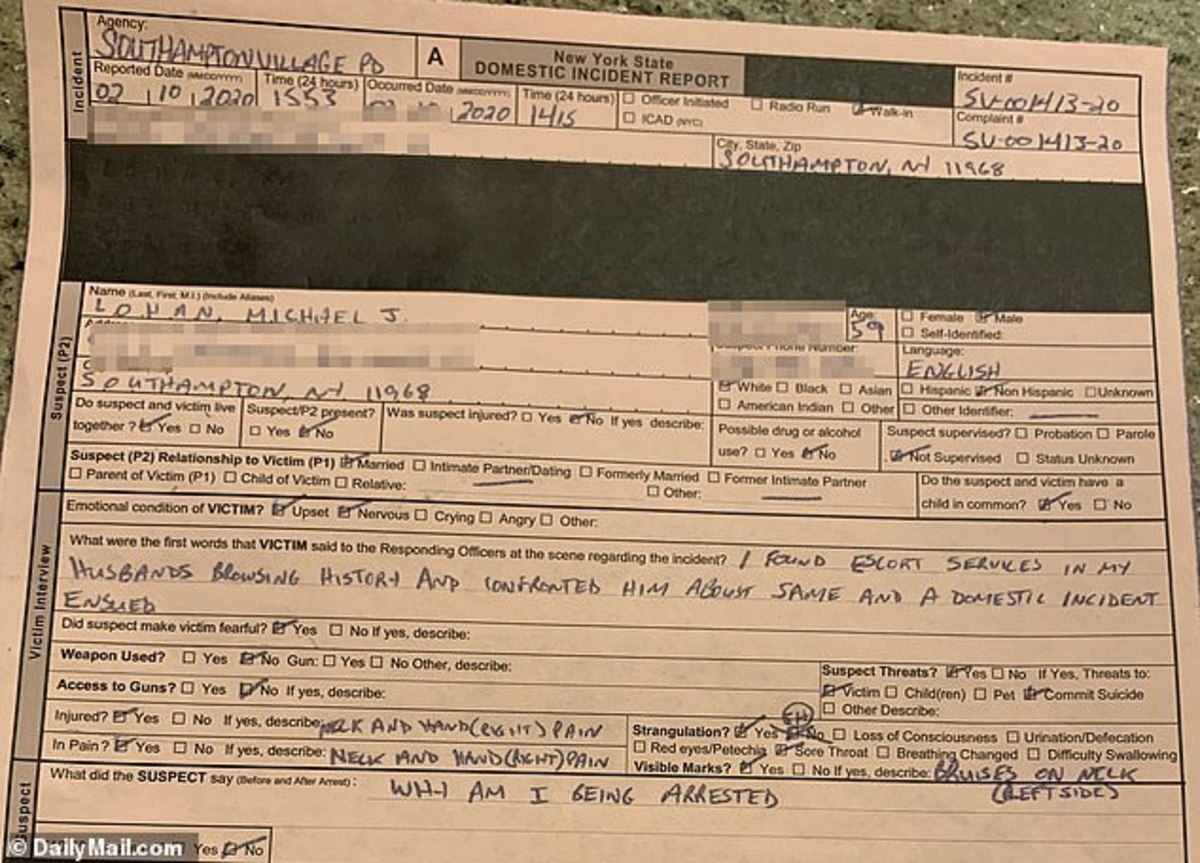 Agency:
SOUTHAMPTON VILLAGE PD
A
New York State
DOMESTIC INCIDENT REPORT
Incident #
SV-001413-20
Incident
Reported Date (MM/DD/YYYY) Time (24 hours) Occurred Date (MM/DD/YYYY) Time (24 hours) ☐ Officer Initiated ☐ Radio Run ☑ Walk-in
02 10 2020 1553 2020 1415 ☐ ICAD (NYC)
Complaint #
SV-001413-20
City, State, Zip
SOUTHAMPTON, NY 11968
Suspect (P2)
Name (Last, First, M.I.) (Include Aliases)
LOHAN, MICHAEL J.
Age:
59
☐ Female ☑ Male
☐ Self-Identified:
Language:
ENGLISH
SOUTHAMPTON, NY 11968
☑ White ☐ Black ☐ Asian ☐ Hispanic ☑ Non Hispanic ☐ Unknown
☐ American Indian ☐ Other ☐ Other Identifier:
Do suspect and victim live together? ☑ Yes ☐ No
Suspect/P2 present? ☐ Yes ☑ No
Was suspect injured? ☐ Yes ☑ No If yes, describe:
Possible drug or alcohol use? ☐ Yes ☑ No
Suspect supervised? ☐ Probation ☐ Parole
☑ Not Supervised ☐ Status Unknown
Suspect (P2) Relationship to Victim (P1) ☑ Married ☐ Intimate Partner/Dating ☐ Formerly Married ☐ Former Intimate Partner
☐ Parent of Victim (P1) ☐ Child of Victim ☐ Relative: ☐ Other:
Do the suspect and victim have a child in common? ☑ Yes ☐ No
Victim Interview
Emotional condition of VICTIM? ☑ Upset ☑ Nervous ☐ Crying ☐ Angry ☐ Other:
What were the first words that VICTIM said to the Responding Officers at the scene regarding the incident? I FOUND ESCORT SERVICES IN MY
HUSBANDS BROWSING HISTORY AND CONFRONTED HIM ABOUT SAME AND A DOMESTIC INCIDENT
ENSUED
Did suspect make victim fearful? ☑ Yes ☐ No If yes, describe:
Weapon Used? ☐ Yes ☑ No Gun: ☐ Yes ☐ No Other, describe:
Access to Guns? ☐ Yes ☑ No If yes, describe:
Suspect Threats? ☑ Yes ☐ No If Yes, Threats to:
☑ Victim ☐ Child(ren) ☐ Pet ☑ Commit Suicide
☐ Other Describe:
Injured? ☑ Yes ☐ No If yes, describe: NECK AND HAND (RIGHT) PAIN
In Pain? ☑ Yes ☐ No If yes, describe: NECK AND HAND (RIGHT) PAIN
EH
Strangulation? ☑ Yes ☑ No ☐ Loss of Consciousness ☐ Urination/Defecation
☐ Red eyes/Petechia ☑ Sore Throat ☐ Breathing Changed ☐ Difficulty Swallowing
Visible Marks? ☑ Yes ☐ No If yes, describe: BRUISES ON NECK
(LEFT SIDE)
Suspect
What did the SUSPECT say (Before and After Arrest): WHY AM I BEING ARRESTED
Yes ☑ No
© DailyMail.com